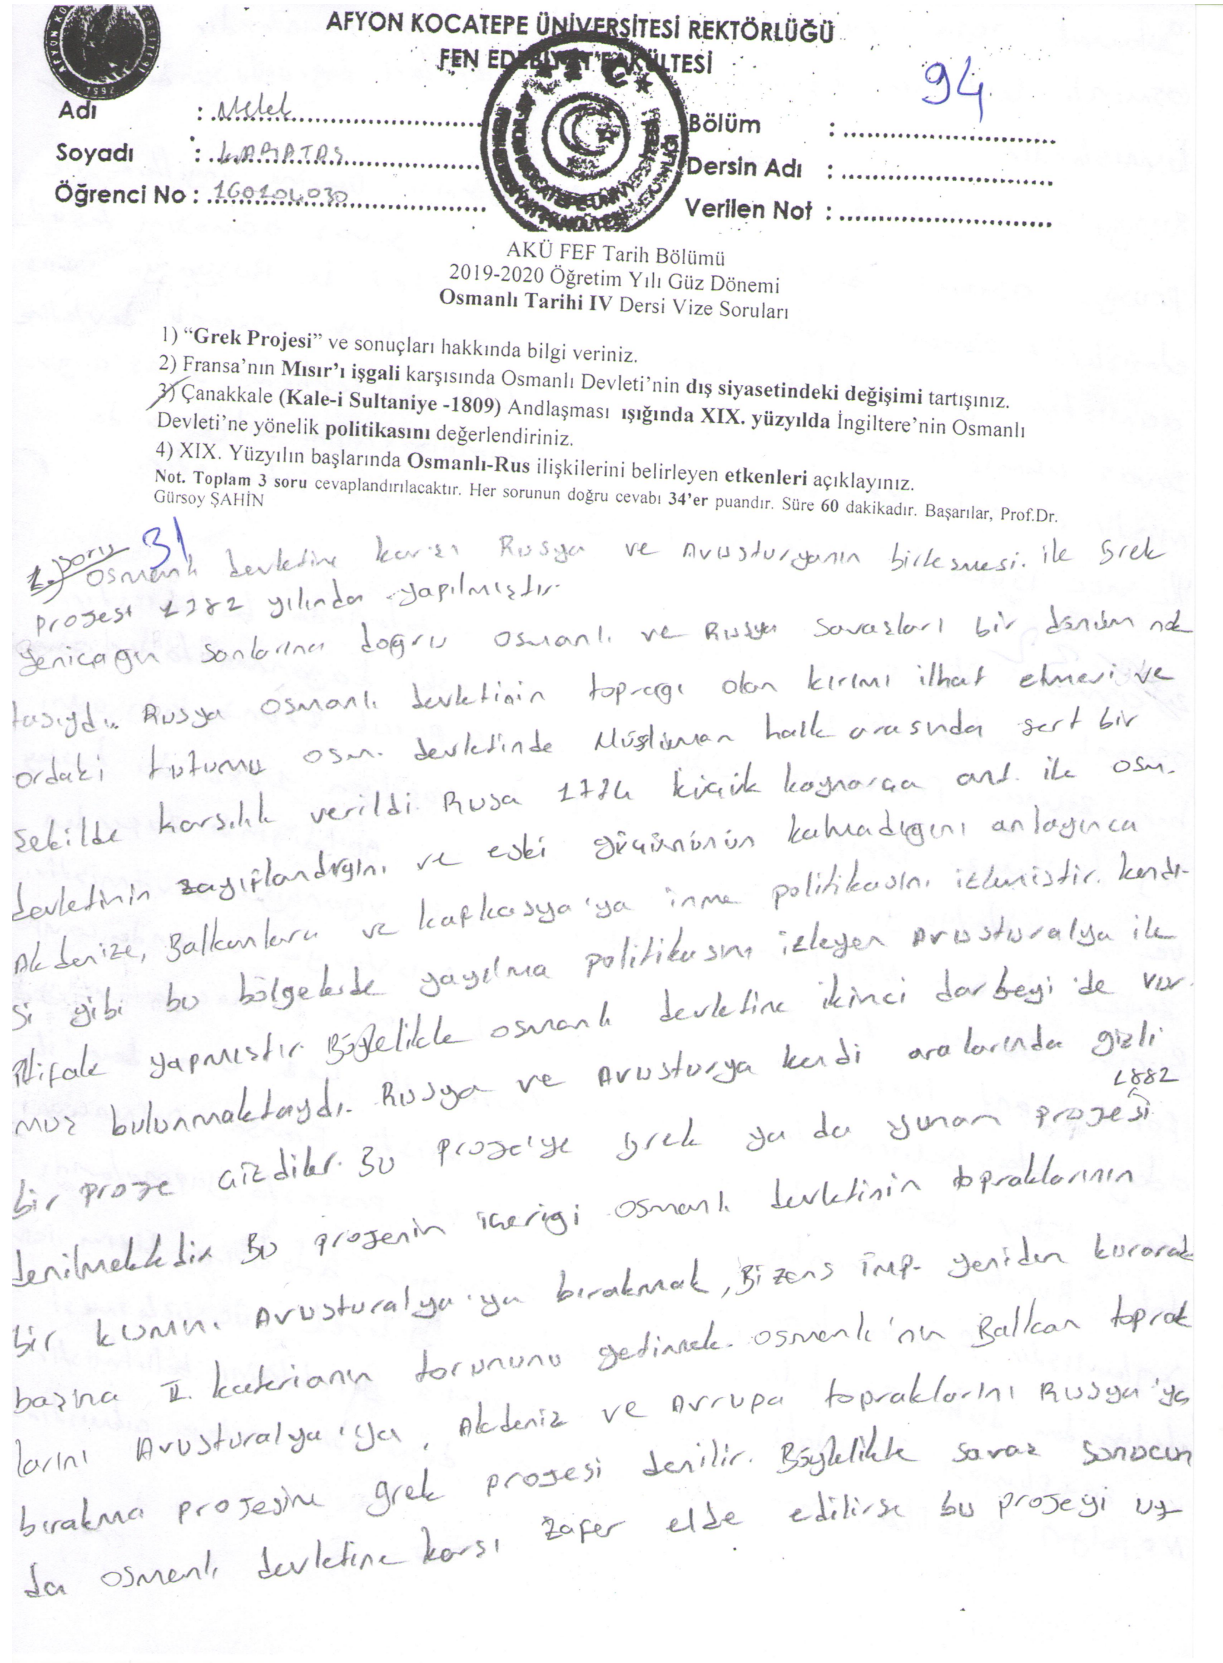 AFYON KOCATEPE ÜNİVERSİTESİ REKTÖRLÜĞÜ
FEN EDEBİYAT FAKÜLTESİ
94
Adı : Melek
Soyadı : KARATAŞ
Öğrenci No : 160104030
Bölüm :
Dersin Adı :
Verilen Not :
AKÜ FEF Tarih Bölümü
2019-2020 Öğretim Yılı Güz Dönemi
Osmanlı Tarihi IV Dersi Vize Soruları
1) “Grek Projesi” ve sonuçları hakkında bilgi veriniz.
2) Fransa’nın Mısır’ı işgali karşısında Osmanlı Devleti’nin dış siyasetindeki değişimi tartışınız.
3) Çanakkale (Kale-i Sultaniye -1809) Andlaşması ışığında XIX. yüzyılda İngiltere’nin Osmanlı
Devleti’ne yönelik politikasını değerlendiriniz.
4) XIX. Yüzyılın başlarında Osmanlı-Rus ilişkilerini belirleyen etkenleri açıklayınız.
Not. Toplam 3 soru cevaplandırılacaktır. Her sorunun doğru cevabı 34’er puandır. Süre 60 dakikadır. Başarılar, Prof.Dr.
Gürsoy ŞAHİN
1. soru 31
Osmanlı devletine karşı Rusya ve Avusturyanın birleşmesi ile Grek
projesi 1782 yılında yapılmıştır.
Yeniçağın sonlarına doğru Osmanlı ve Rusya Savaşları bir dönüm nok
taşıydı. Rusya Osmanlı devletinin toprağı olan kırımı ilhat etmesi ve
ordaki tutumu Osm. devletinde Müslüman halk arasında sert bir
şekilde karşılık verildi. Rusa 1774 küçük kaynarca ant. ile osm.
devletinin zayıflandığını ve eski gücününün kalmadığını anlayınca
Akdenize, Balkanlara ve kafkasya'ya inme politikasını izlemiştir. kendi-
si gibi bu bölgelerde yayılma politikasını izleyen Avusturalya ile
ittifak yapmıştır. Böylelikle osmanlı devletine ikinci darbeyi'de vur.
muş bulunmaktaydı. Rusya ve Avusturya kendi aralarında gizli
1882
bir proje çizdiler. Bu proje'ye grek ya da yunan projesi
denilmektedir. Bu projenin içeriği osmanlı devletinin topraklarının
bir kısmını Avusturalya'ya bırakmak, Bizans İmp. yeniden kurarak
başına II. katerianın torununu getirmek. Osmanlı'nın Balkan toprak
larını Avusturalya'ya, Akdeniz ve Avrupa topraklarını Rusya'ya
bırakma projesine grek projesi denilir. Böylelikle savaş sonucun
da osmanlı devletine karşı zafer elde edilirse bu projeyi uy